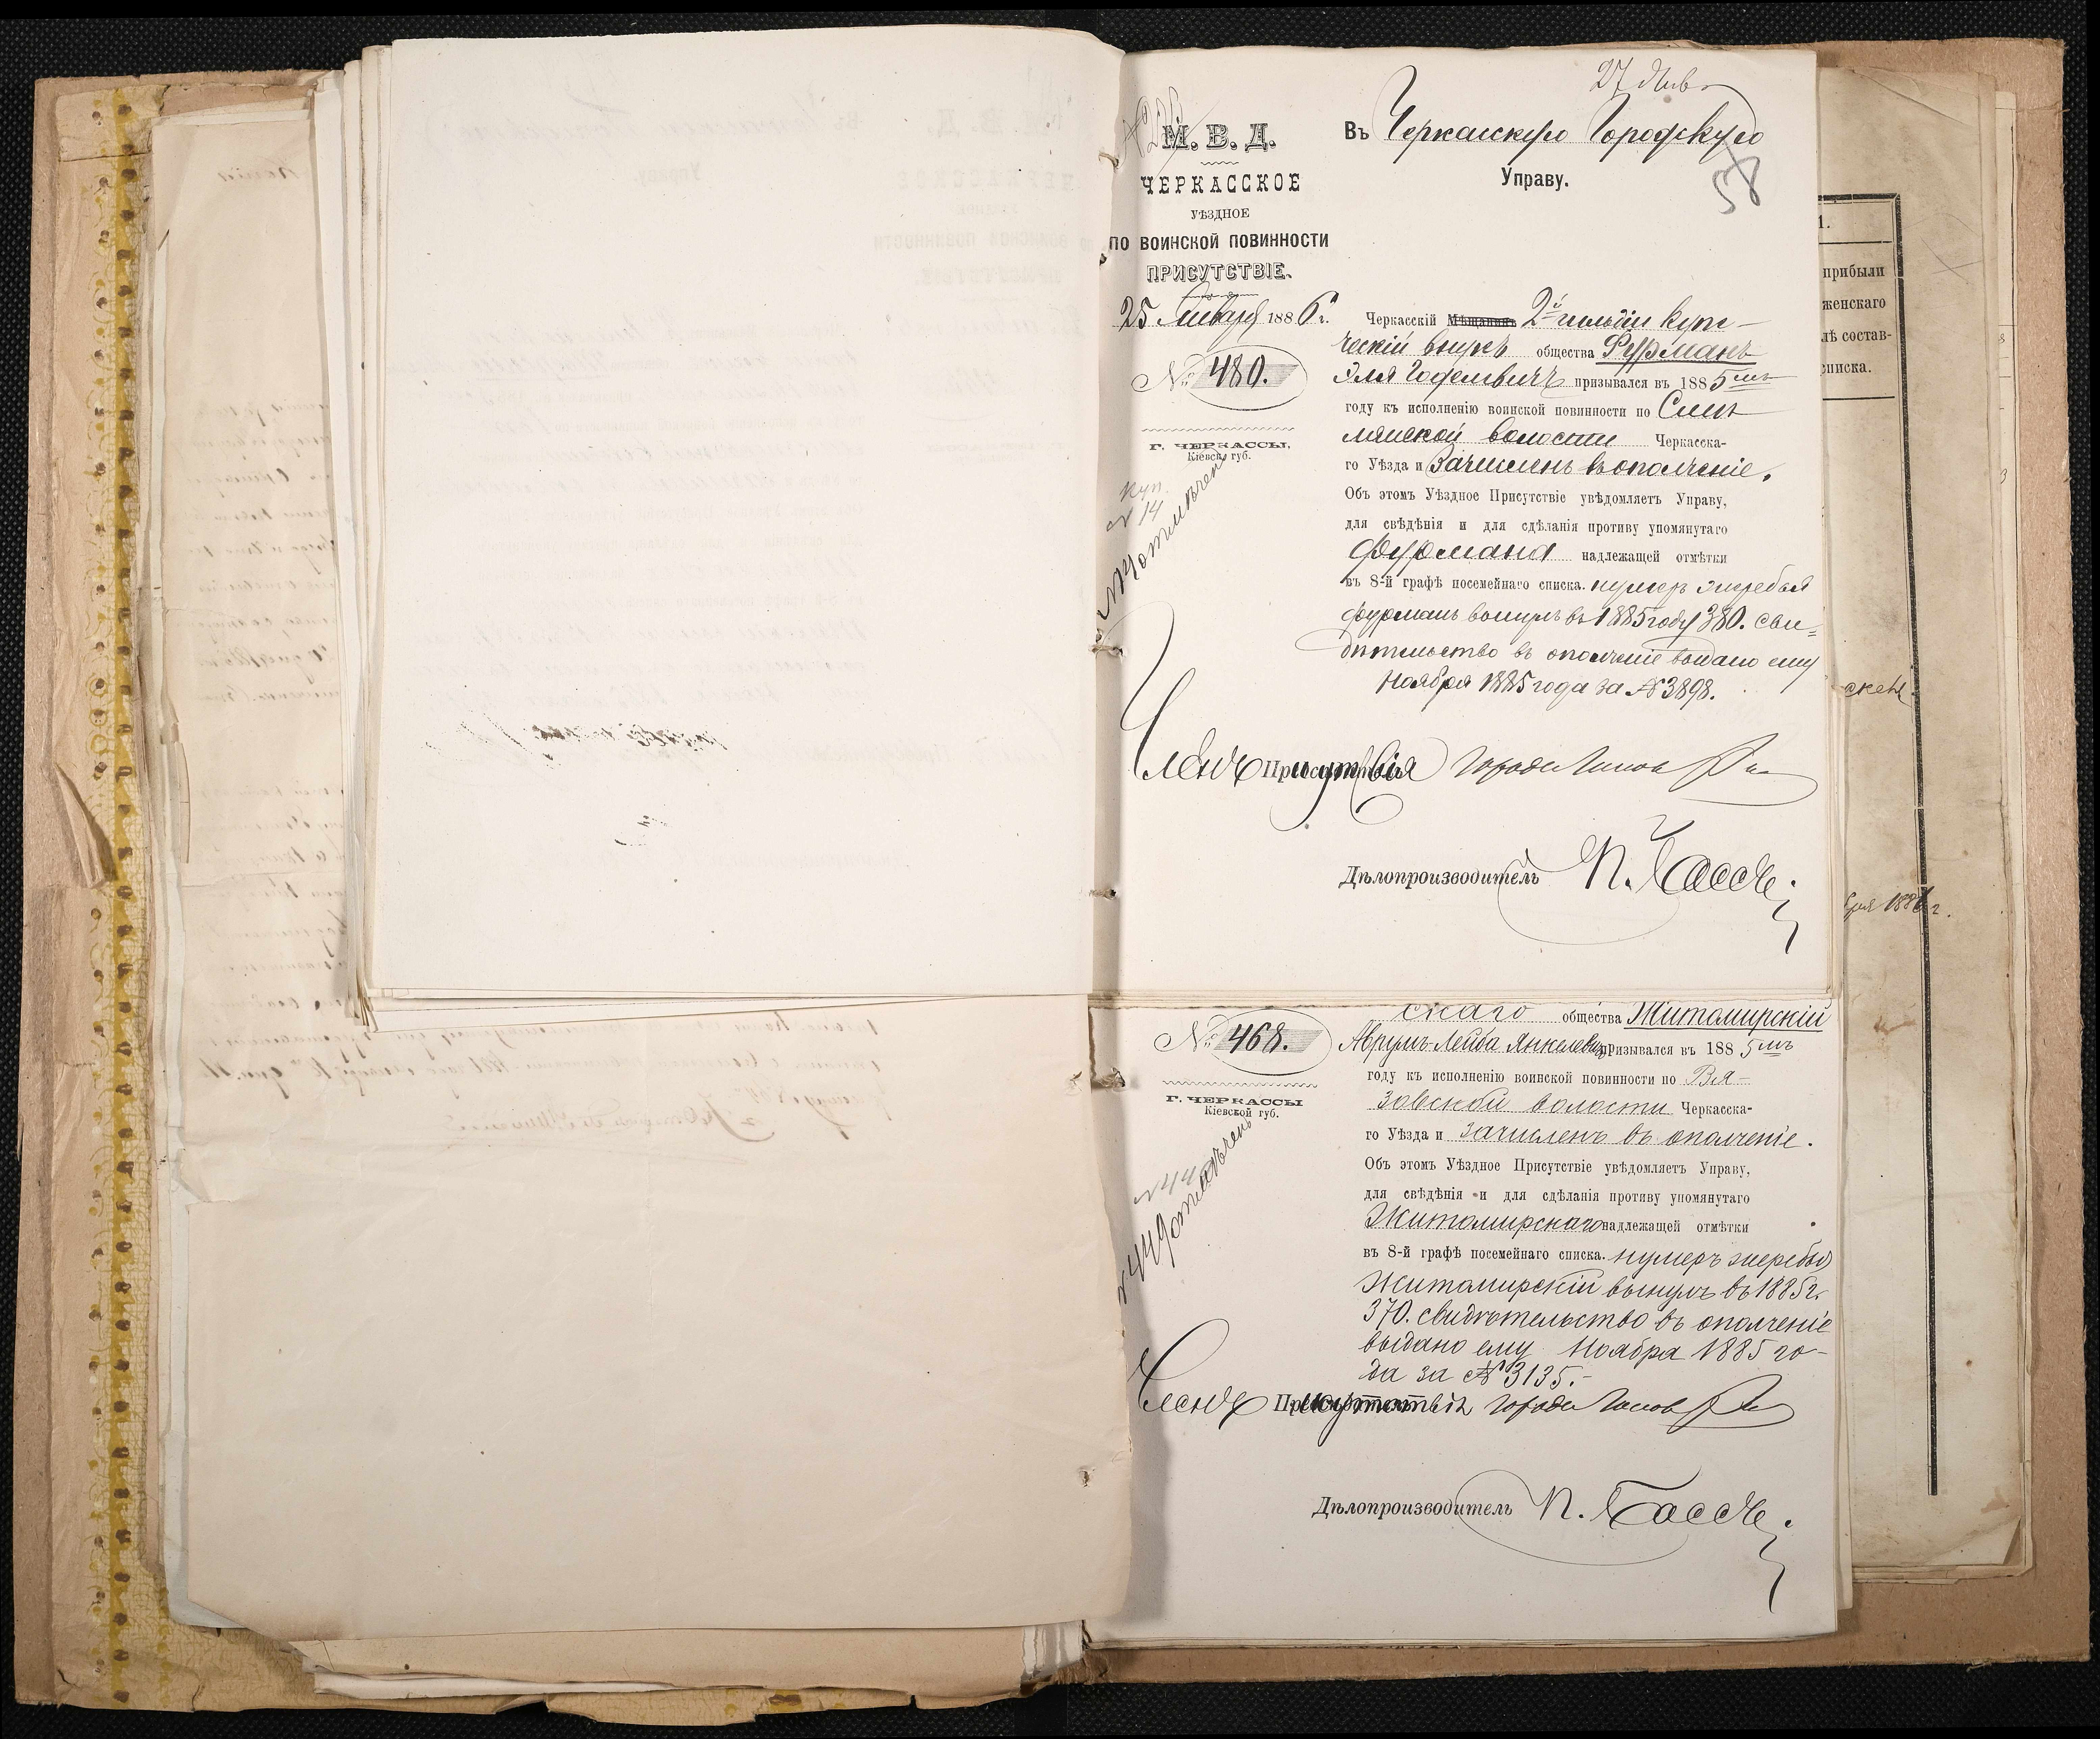 27 Янв
Въ Черкасскую Городскую
Управу.
58
М. В. Д.
ЧЕРКАССКОЕ
УѢЗДНОЕ
ПО ВОИНСКОЙ ПОВИННОСТИ
ПРИСУТСТВІЕ.
25 Января 1886 г.
№ 480.
Г. ЧЕРКАССЫ,
Кіевск. губ.
Куп.
№ 14
№ 14 отмѣченъ
Черкасскій Мѣщанинъ 2й гильдіи купе-
ческій внукъ общества Фурманъ
Эля Іоделевичъ призывался въ 1885мъ
году къ исполненію воинской повинности по Смѣ-
лянской волости Черкасска-
го Уѣзда и Зачисленъ въ ополченіе.
Объ этомъ Уѣздное Присутствіе увѣдомляетъ Управу,
для свѣдѣнія и для сдѣланія противу упомянутаго
Фурмана надлежащей отмѣтки
въ 8-й графѣ посемейнаго списка. нумеръ жеребья
Фурманъ вынулъ въ 1885 году 380. сви=
дѣтельство въ ополченіе выдано ему
Ноября 1885 года за № 3898.
Членъ Присутствія Городской
Дѣлопроизводитель П. Бассъ
скаго общества Житомирскій
№ 468.
Аврумъ-Лейба Янкелевъ призывался въ 1885мъ
году къ исполненію воинской повинности по Вя-
зовской волости Черкасска-
го Уѣзда и зачисленъ въ ополченіе.
Г. ЧЕРКАССЫ
Кіевской губ.
№ 449 отмѣченъ
Объ этомъ Уѣздное Присутствіе увѣдомляетъ Управу,
для свѣдѣнія и для сдѣланія противу упомянутаго
Житомирскаго надлежащей отмѣтки
въ 8-й графѣ посемейнаго списка. нумеръ жеребья
Житомирскій вынулъ въ 1885 г.
370. свидѣтельство въ ополченіе
выдано ему Ноября 1885 го-
да за № 3135.-
Членъ Присутствія
Дѣлопроизводитель П. Бассъ
1.
прибыли
женскаго
лѣ состав-
списка.